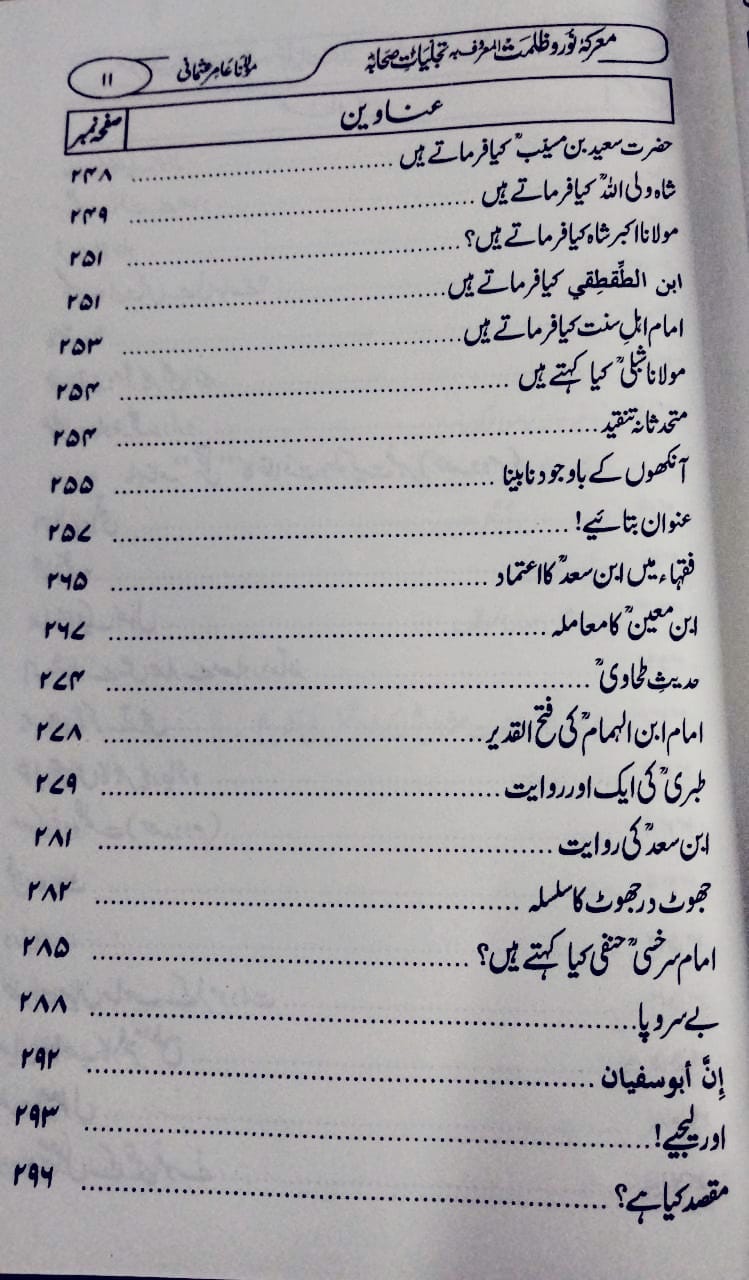 معرکۂ نور و ظلمت المعروف بہ تجلیات صحابہؓ
مولانا عامر عثمانی
۱۱
عناوین
صفحہ نمبر
حضرت سعید بن مسیبؒ کیا فرماتے ہیں ............ ۲۴۸
شاہ ولی اللہؒ کیا فرماتے ہیں ............ ۲۴۹
مولانا اکبر شاہ کیا فرماتے ہیں؟ ............ ۲۵۱
ابن الطِّقطِقي کیا فرماتے ہیں ............ ۲۵۱
امام اہلِ سنت کیا فرماتے ہیں ............ ۲۵۳
مولانا شبلیؒ کیا کہتے ہیں ............ ۲۵۴
متحدثانہ تنقید ............ ۲۵۴
آنکھوں کے باوجود نابینا ............ ۲۵۵
عنوان بتائیے! ............ ۲۵۷
فقہاء میں ابن سعدؒ کا اعتماد ............ ۲۶۵
ابن معینؒ کا معاملہ ............ ۲۶۷
حدیثِ طحاویؒ ............ ۲۷۴
امام ابن الہمامؒ کی فتح القدیر ............ ۲۷۸
طبریؒ کی ایک اور روایت ............ ۲۷۹
ابن سعدؒ کی روایت ............ ۲۸۱
جھوٹ در جھوٹ کا سلسلہ ............ ۲۸۲
امام سرخسیؒ حنفی کیا کہتے ہیں؟ ............ ۲۸۵
بے سروپا ............ ۲۸۸
إنَّ أبوسفیان ............ ۲۹۲
اور لیجیے! ............ ۲۹۳
مقصد کیا ہے؟ ............ ۲۹۶